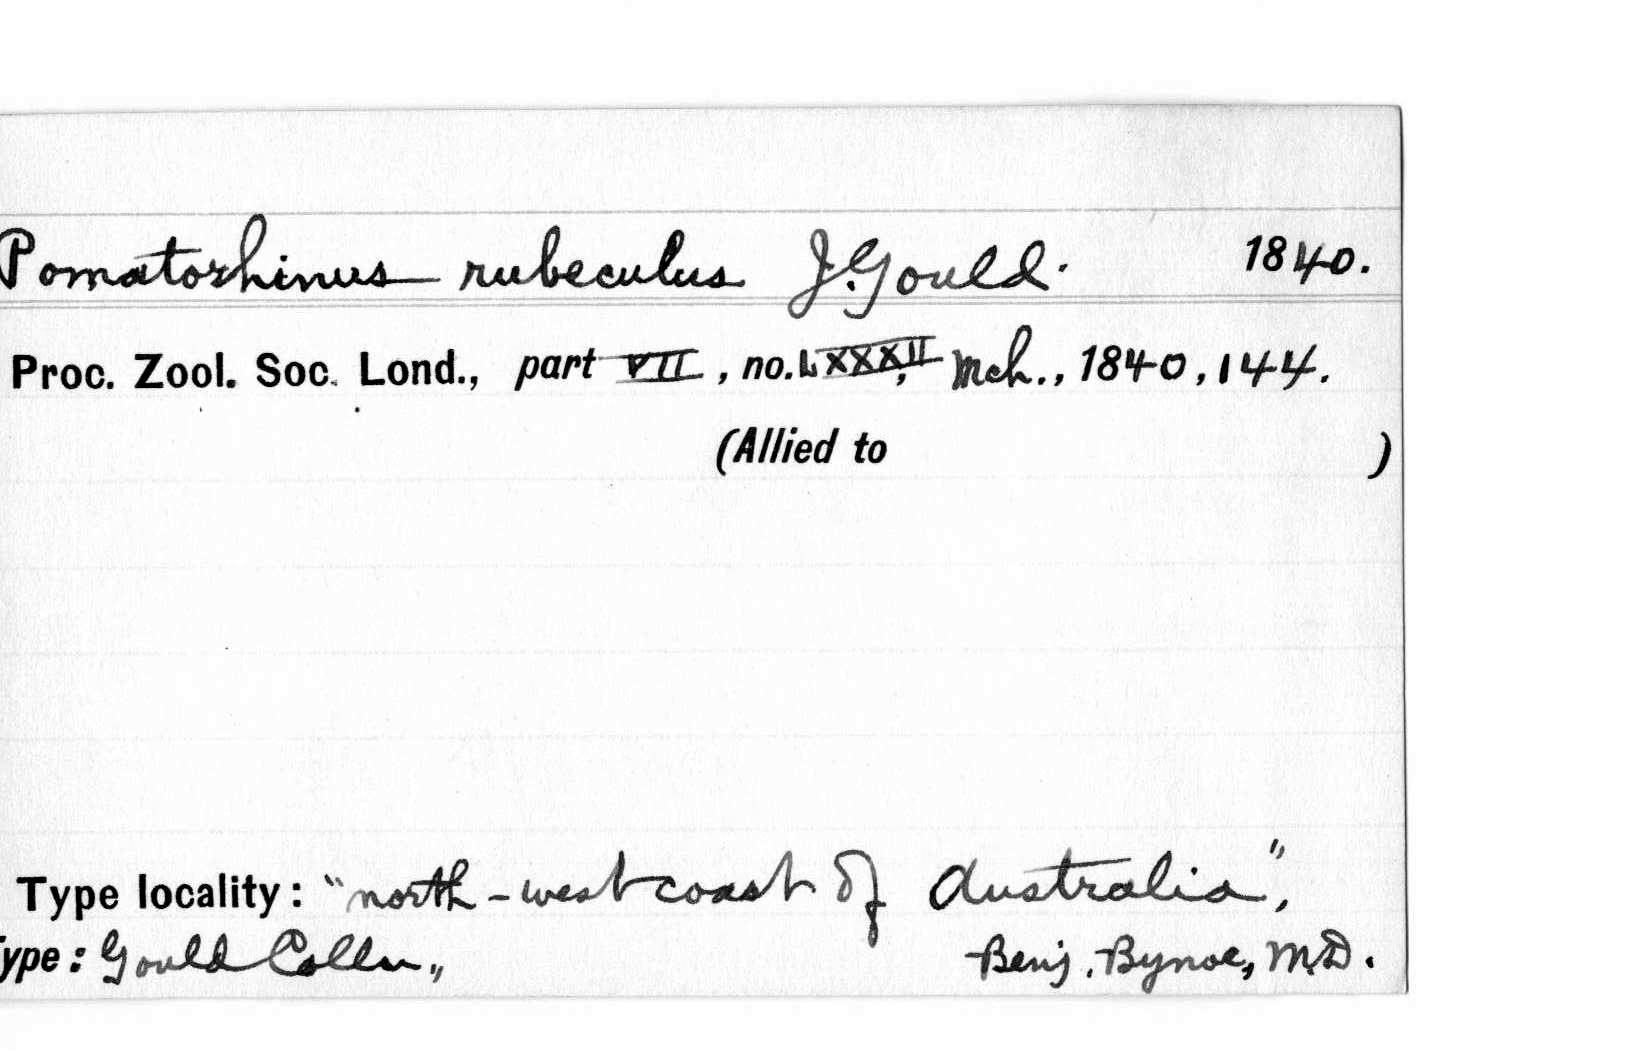 Pomatorhinus rubeculus J. Gould. 1840.
Proc. Zool. Soc. Lond., part VII, no. LXXXII, Mch., 1840, 144.
(Allied to )
Type locality: "north-west coast of Australia",
ype: Gould Colln., Benj. Bynoe, M.D.